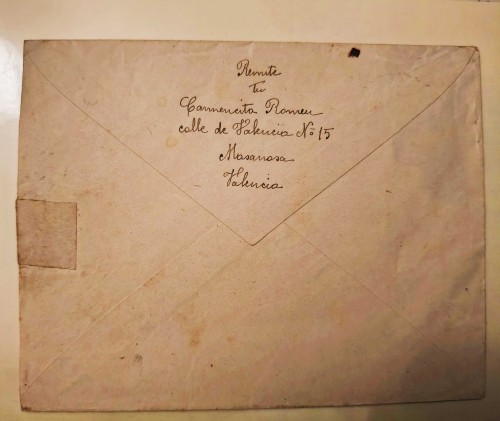 Remite
tu
Carmencita Romeu
calle de Valencia Nº 15
Masanasa
Valencia